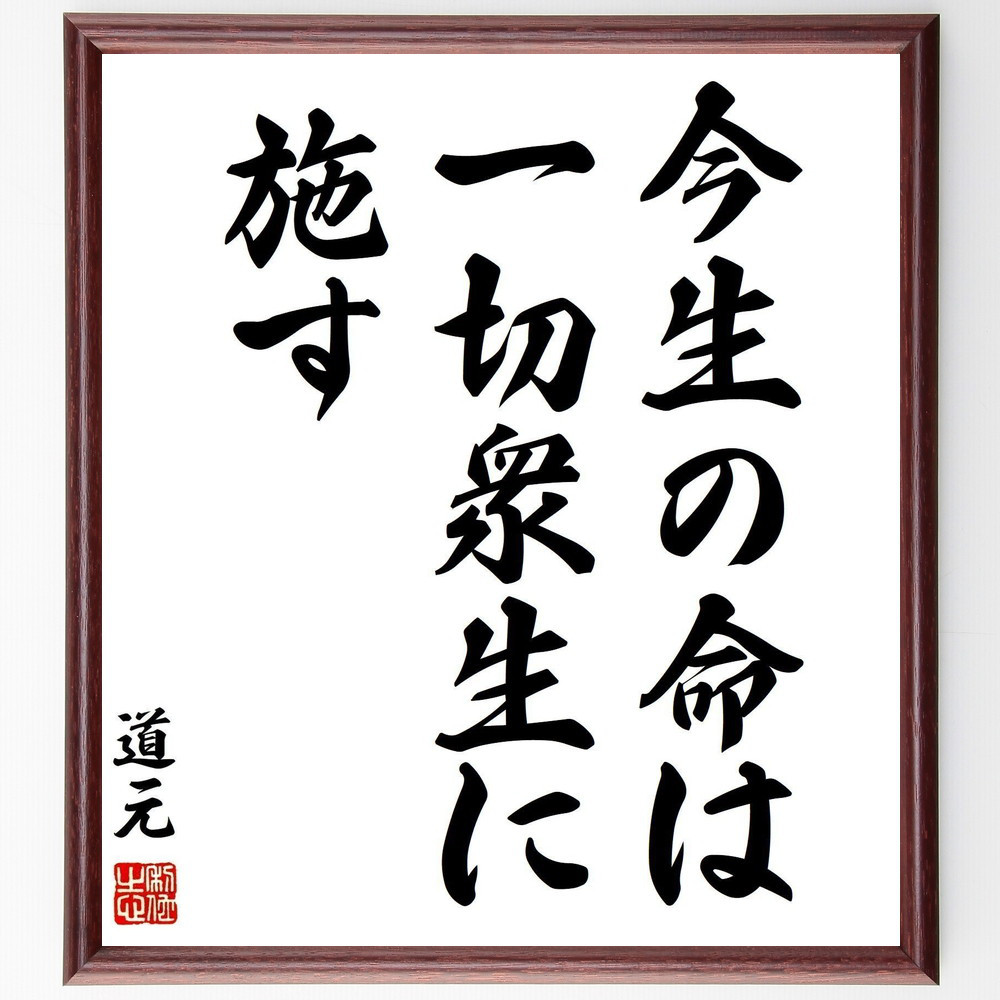 今生の命は
一切衆生に
施す
道元